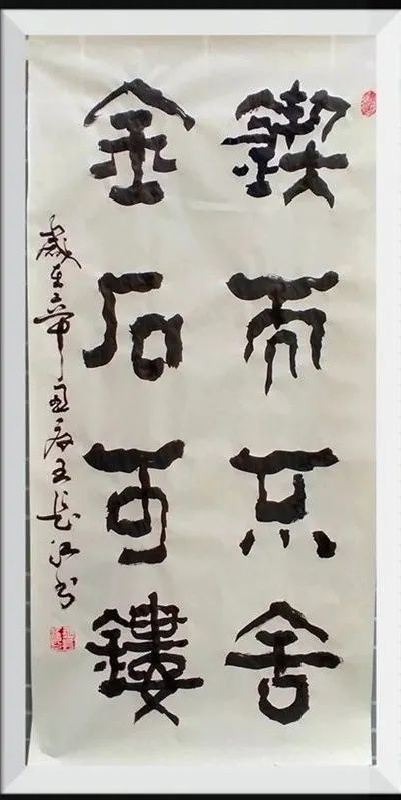 鍥而不舍
金石可鏤
歲在辛王長江书